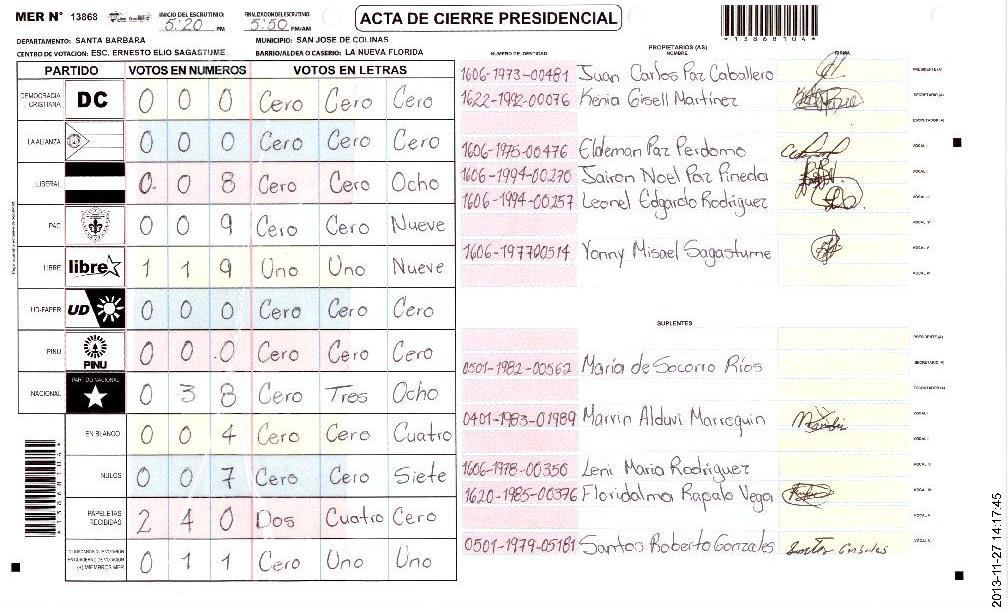 MER N° 13868 INICIO DEL ESCRUTINIO: 5:20 PM FINALIZACION DEL ESCRUTINIO: 5:50 PM/AM
ACTA DE CIERRE PRESIDENCIAL
*13868104*
DEPARTAMENTO: SANTA BARBARA MUNICIPIO: SAN JOSE DE COLINAS
CENTRO DE VOTACION: ESC. ERNESTO ELIO SAGASTUME BARRIO/ALDEA O CASERIO: LA NUEVA FLORIDA
PARTIDO VOTOS EN NUMEROS VOTOS EN LETRAS
DEMOCRACIA CRISTIANA DC 0 0 0 Cero Cero Cero
LA ALIANZA 0 0 0 Cero Cero Cero
LIBERAL 0 0 8 Cero Cero Ocho
PAC 0 0 9 Cero Cero Nueve
LIBRE libre 1 1 9 Uno Uno Nueve
UD-FAPER UD 0 0 0 Cero Cero Cero
PINU PINU 0 0 0 Cero Cero Cero
NACIONAL PARTIDO NACIONAL 0 3 8 Cero Tres Ocho
EN BLANCO 0 0 4 Cero Cero Cuatro
NULOS 0 0 7 Cero Cero Siete
PAPELETAS RECIBIDAS 2 4 0 Dos Cuatro Cero
0 1 1 Cero Uno Uno
*13868104*
PROPIETARIOS (AS)
NUMERO DE IDENTIDAD NOMBRE FIRMA
1606-1973-00481 Juan Carlos Paz Caballero PRESIDENTE (A)
1622-1992-00076 Kenia Gisell Martínez SECRETARIO (A)
ESCRUTADOR (A)
1606-1975-00476 Eldeman Paz Perdomo VOCAL I
1606-1994-00270 Jairon Noel Paz Pineda
1606-1994-00257 Leonel Edgardo Rodriguez VOCAL III
VOCAL IV
1606-197700514 Yonny Misael Sagastume VOCAL V
VOCAL VI
SUPLENTES
PRESIDENTE (A)
0501-1982-00562 María de Socorro Ríos SECRETARIO (A)
ESCRUTADOR (A)
0401-1983-01989 Marvin Alduvi Marroquin VOCAL I
VOCAL II
1606-1978-00350 Leni Maria Rodriguez
1620-1985-00376 Floridalma Rapalo Vega
0501-1979-05181 Santos Roberto Gonzales
2013-11-27 14:17:45